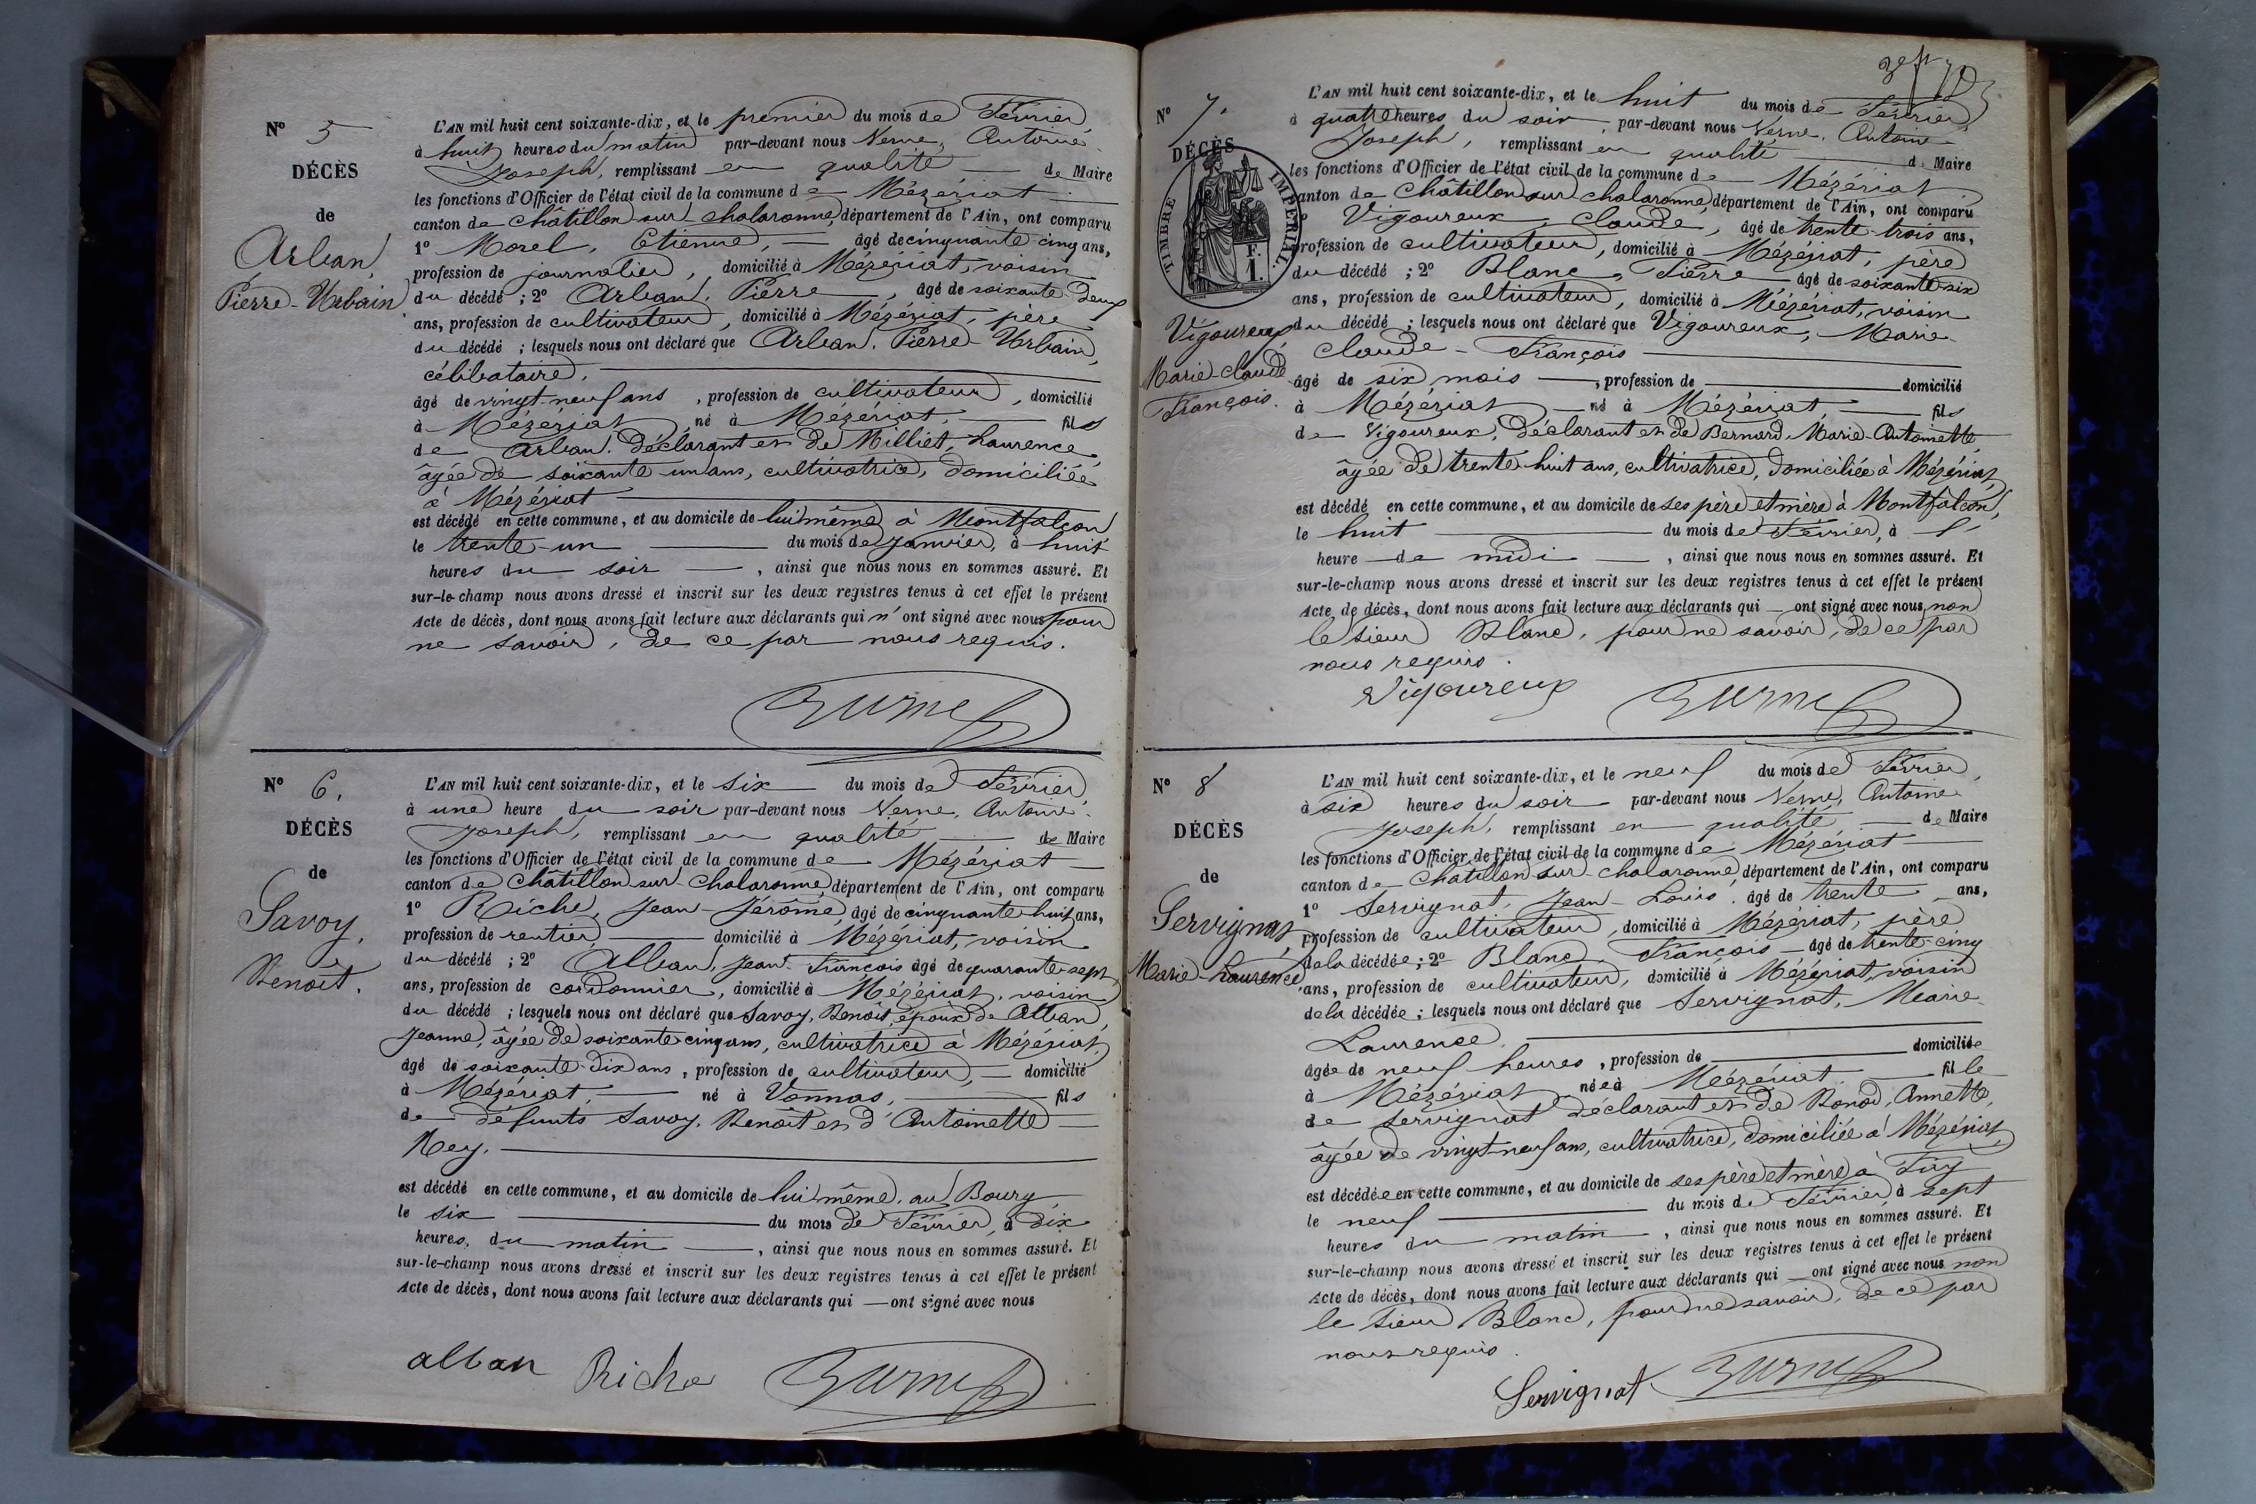 N° 5
DÉCÈS
de
Arban,
Pierre-Urbain
L'AN mil huit cent soixante-dix, et le premier du mois de Février,
à huit heures du matin par-devant nous Verne, Antoine-
Joseph, remplissant en qualité de Maire
les fonctions d'Officier de l'état civil de la commune de Mézériat
canton de Châtillon sur chalaronne, département de l'Ain, ont comparu
1° Morel, Etienne, âgé de cinquante-cinq ans,
profession de journalier, domicilié à Mézériat, voisin
du décédé ; 2° Arban, Pierre, âgé de soixante-deux
ans, profession de cultivateur, domicilié à Mézériat, père
du décédé ; lesquels nous ont déclaré que Arban, Pierre-Urbain,
célibataire,
âgé de vingt-neuf ans, profession de cultivateur, domicilié
à Mézériat, né à Mézériat, fils
de Arban, déclarant et de Milliet, Laurence,
âgée de soixante un ans, cultivatrice, domiciliée
à Mézériat
est décédé en cette commune, et au domicile de lui même, à Montfalcon
le trente-un du mois de janvier, à huit
heures du soir, ainsi que nous nous en sommes assuré. Et
sur-le-champ nous avons dressé et inscrit sur les deux registres tenus à cet effet le présent
Acte de décès, dont nous avons fait lecture aux déclarants qui n'ont signé avec nous pour
ne savoir, de ce par nous requis.
Verne
N° 6.
DÉCÈS
de
Savoy,
Benoît.
L'AN mil huit cent soixante-dix, et le six du mois de Février,
à une heure du soir par-devant nous Verne, Antoine-
Joseph, remplissant en qualité de Maire
les fonctions d'Officier de l'état civil de la commune de Mézériat
canton de Châtillon sur chalaronne, département de l'Ain, ont comparu
1° Riche, Jean-Jérôme, âgé de cinquante huit ans,
profession de rentier, domicilié à Mézériat, voisin
du décédé ; 2° Alban, Jean-François âgé de quarante-sept
ans, profession de cordonnier, domicilié à Mézériat, voisin
du décédé ; lesquels nous ont déclaré que Savoy, Benoît, époux de Alban,
Jeanne, âgée de soixante cinq ans, cultivatrice à Mézériat,
âgé de soixante-dix ans, profession de cultivateur, domicilié
à Mézériat, né à Vonnas, fils
de défunts Savoy, Benoît et d'Antoinette
Rey.
est décédé en cette commune, et au domicile de lui même, au Bourg
le six du mois de Février, à dix
heures, du matin, ainsi que nous nous en sommes assuré. Et
sur-le-champ nous avons dressé et inscrit sur les deux registres tenus à cet effet le présent
Acte de décès, dont nous avons fait lecture aux déclarants qui ont signé avec nous
alban Riche Verne
N° 7.
DÉCÈS
TIMBRE IMPÉRIAL
F.
1.
Vigoureux,
Marie-Claude
François.
L'AN mil huit cent soixante-dix, et le huit du mois de Février,
à quatre heures du soir, par-devant nous Verne, Antoine-
Joseph, remplissant en qualité de Maire
les fonctions d'Officier de l'état civil de la commune de Mézériat
canton de Châtillon sur chalaronne, département de l'Ain, ont comparu
Vigoureux, Claude, âgé de trente-trois ans,
profession de cultivateur, domicilié à Mézériat, père
du décédé ; 2° Blanc, Pierre âgé de soixante-six
ans, profession de cultivateur, domicilié à Mézériat, voisin
du décédé ; lesquels nous ont déclaré que Vigoureux, Marie-
Claude-François
âgé de six mois, profession de domicilié
à Mézériat né à Mézériat, fils
de Vigoureux, déclarant et de Bernard Marie-Antoinette
âgée de trente-huit ans, cultivatrice, domiciliée à Mézériat,
est décédé en cette commune, et au domicile de ses père et mère à Montfalcon,
le huit du mois de Février, à l'
heure de midi, ainsi que nous nous en sommes assuré. Et
sur-le-champ nous avons dressé et inscrit sur les deux registres tenus à cet effet le présent
Acte de décès, dont nous avons fait lecture aux déclarants qui ont signé avec nous, non
le sieur Blanc, pour ne savoir, de ce par
nous requis.
Vigoureux Verne
N° 8
DÉCÈS
de
Servignat,
Marie-Laurence,
L'AN mil huit cent soixante-dix, et le neuf du mois de Février,
à six heures du soir par-devant nous Verne, Antoine-
Joseph, remplissant en qualité de Maire
les fonctions d'Officier de l'état civil de la commune de Mézériat
canton de Châtillon sur chalaronne, département de l'Ain, ont comparu
1° Servignat, Jean-Louis, âgé de trente ans,
profession de cultivateur, domicilié à Mézériat, père
de la décédée ; 2° Blanc, François âgé de trente-cinq
ans, profession de cultivateur, domicilié à Mézériat, voisin
de la décédée ; lesquels nous ont déclaré que Servignat, Marie-
Laurence,
âgée de neuf heures, profession de domiciliée
à Mézériat née à Mézériat, fille
de Servignat déclarant et de Annette,
âgée de vingt-neuf ans, cultivatrice, domiciliée à Mézériat,
est décédée en cette commune, et au domicile de ses père et mère, à
le neuf du mois de Février à sept
heures du matin, ainsi que nous nous en sommes assuré. Et
sur-le-champ nous avons dressé et inscrit sur les deux registres tenus à cet effet le présent
Acte de décès, dont nous avons fait lecture aux déclarants qui ont signé avec nous non
le sieur Blanc, pour ne savoir, de ce par
nous requis.
Servignat Verne